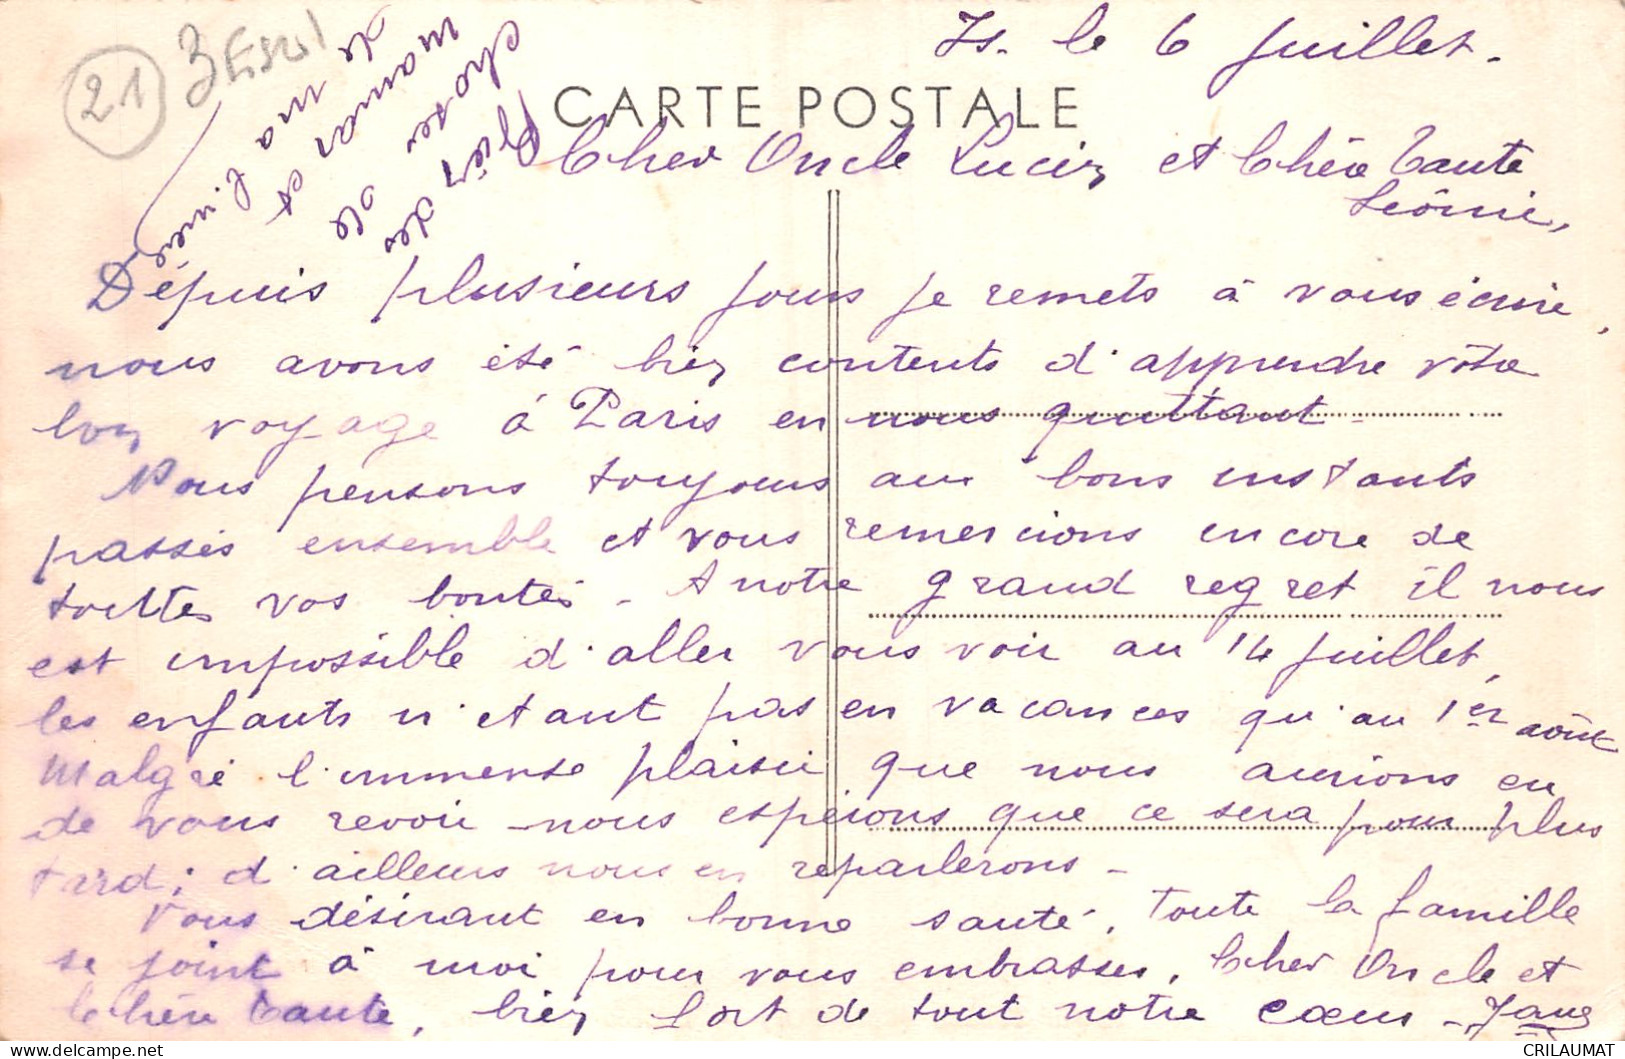 21
Is. le 6 Juillet.
CARTE POSTALE
Cher Oncle Lucien et Chère Tante
Léonie,
Dépuis plusieurs jours je remets à vous écrire,
nous avons été bien contents d'apprendre vôtre
bon voyage à Paris en nous quittant.
Nous pensons toujours aux bons instants
passés ensemble et vous remercions encore de
toutes vos bontés. A notre grand regret il nous
est impossible d'aller vous voir au 14 Juillet,
les enfants n'etant pas en vacances qu'au 1er août
Malgré l'immense plaisir que nous aurions eu
de vous revoir nous espérons que ce sera pour plus
tard; d'ailleurs nous en reparlerons.
Vous désirant en bonne santé, Toute la famille
se joint à moi pour vous embrasser, Cher Oncle et
Chère Tante, bien fort de tout notre coeur -
Bien des
choses de
maman et
de ma
CRILAUMAT